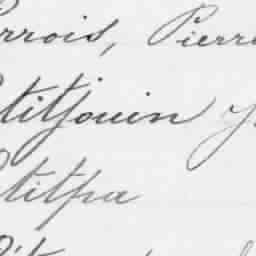 errois, Pierre
etitjouin J.
etitpa